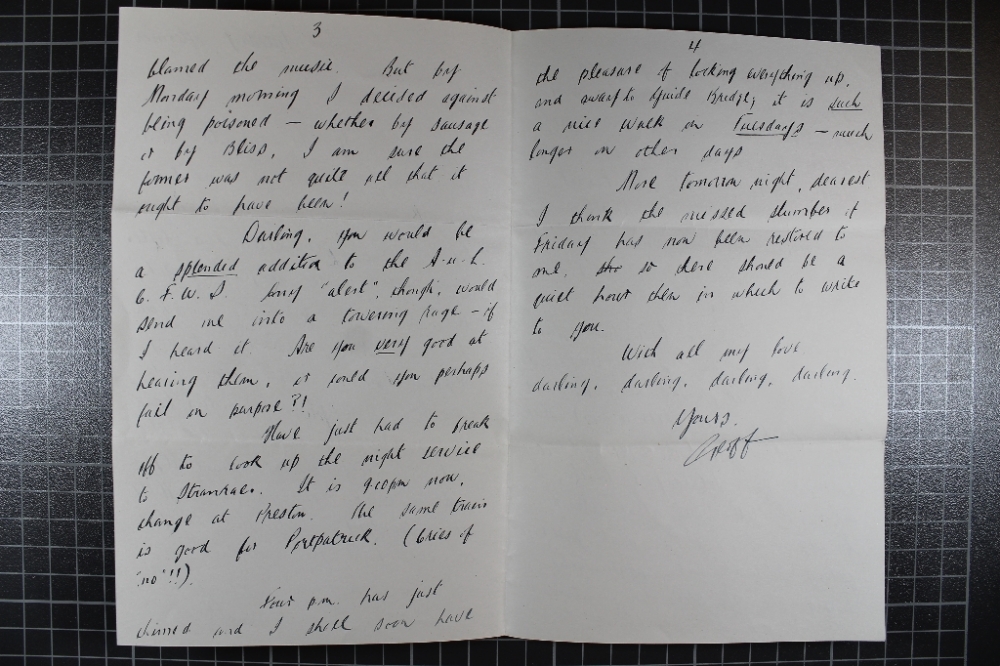 3
blamed the music. But by
Monday morning I decided against
being poisoned — whether by sausage
or by Bliss, I am sure the
former was not quite all that it
ought to have been!
Darling, you would be
a splended addition to the A-u-L.
C. F. W. S. Any "alert", though, would
send me into a towering rage — if
I heard it. Are you very good at
hearing them, or could you perhaps
fail on purpose?!
Have just had to break
off to look up the night service
to Stranraer. It is 9.00pm now,
change at Preston. The same train
is good for Portpatrick. (Cries of
'no'!!).
Four p.m. has just
chimed and I shall soon have
4
the pleasure of locking everything up,
and away to Guide Bridge; it is such
a nice walk on Tuesdays — much
longer on other days
More tomorrow night, dearest
I think the missed slumber of
Friday has now been restored to
me, so there should be a
quiet hour then in which to write
to you.
With all my love
darling, darling, darling, darling.
Yours.
Geoff